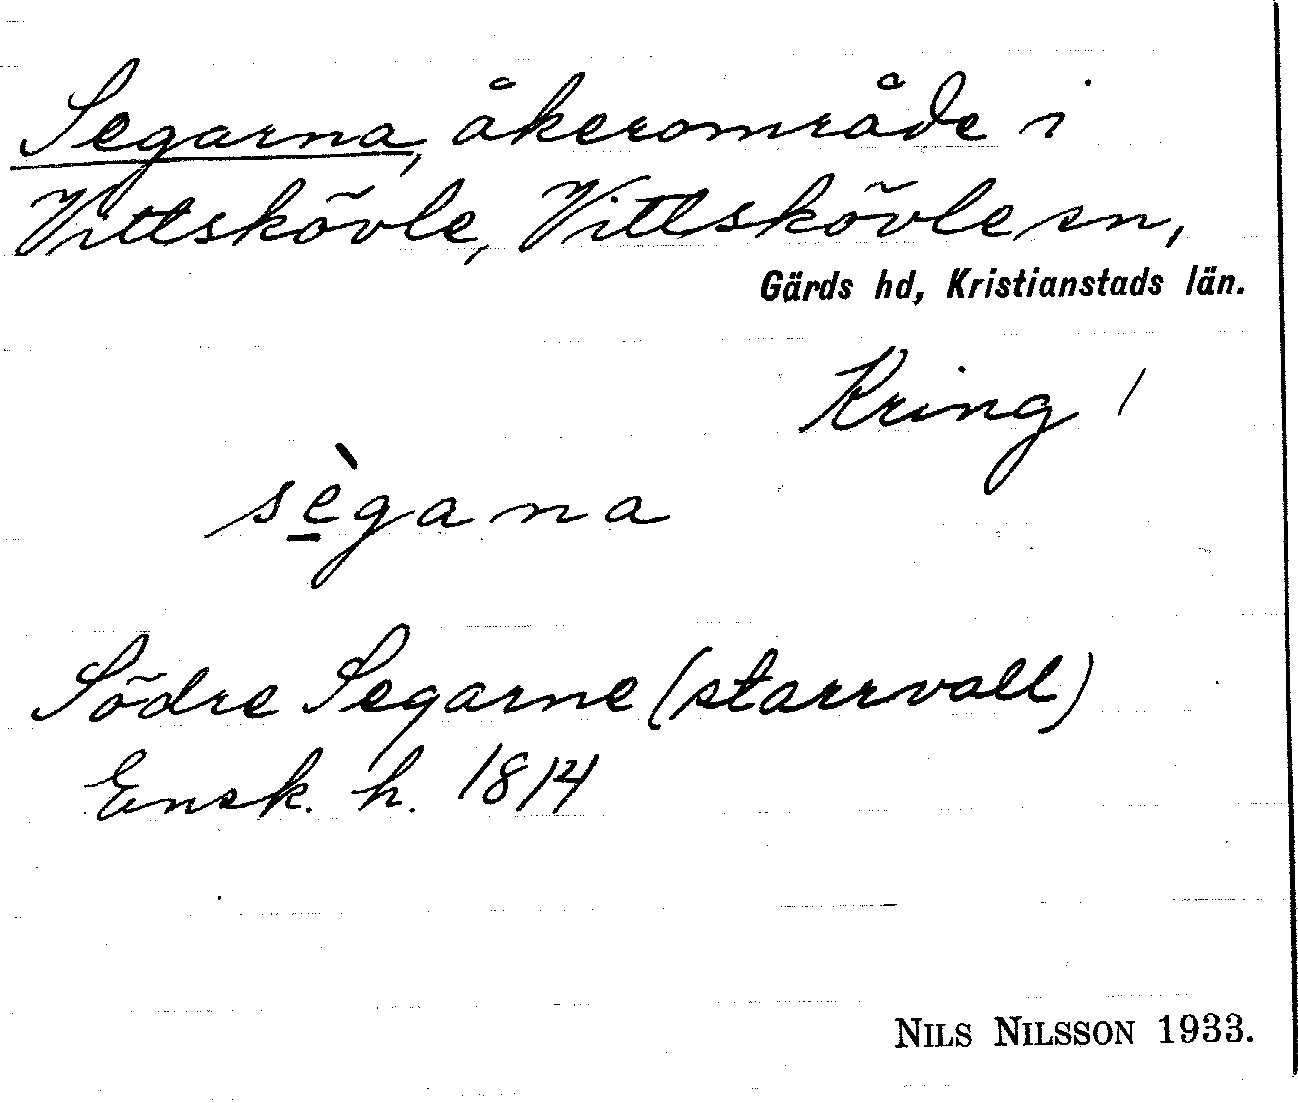 Segarna, åkerområde i
Vittskövle, Vittskövle sn,
Gärds hd, Kristianstads län.
Kring /
sègana
Södre Segarne (starrvall)
Ensk. h. 1814
NILS NILSSON 1933.